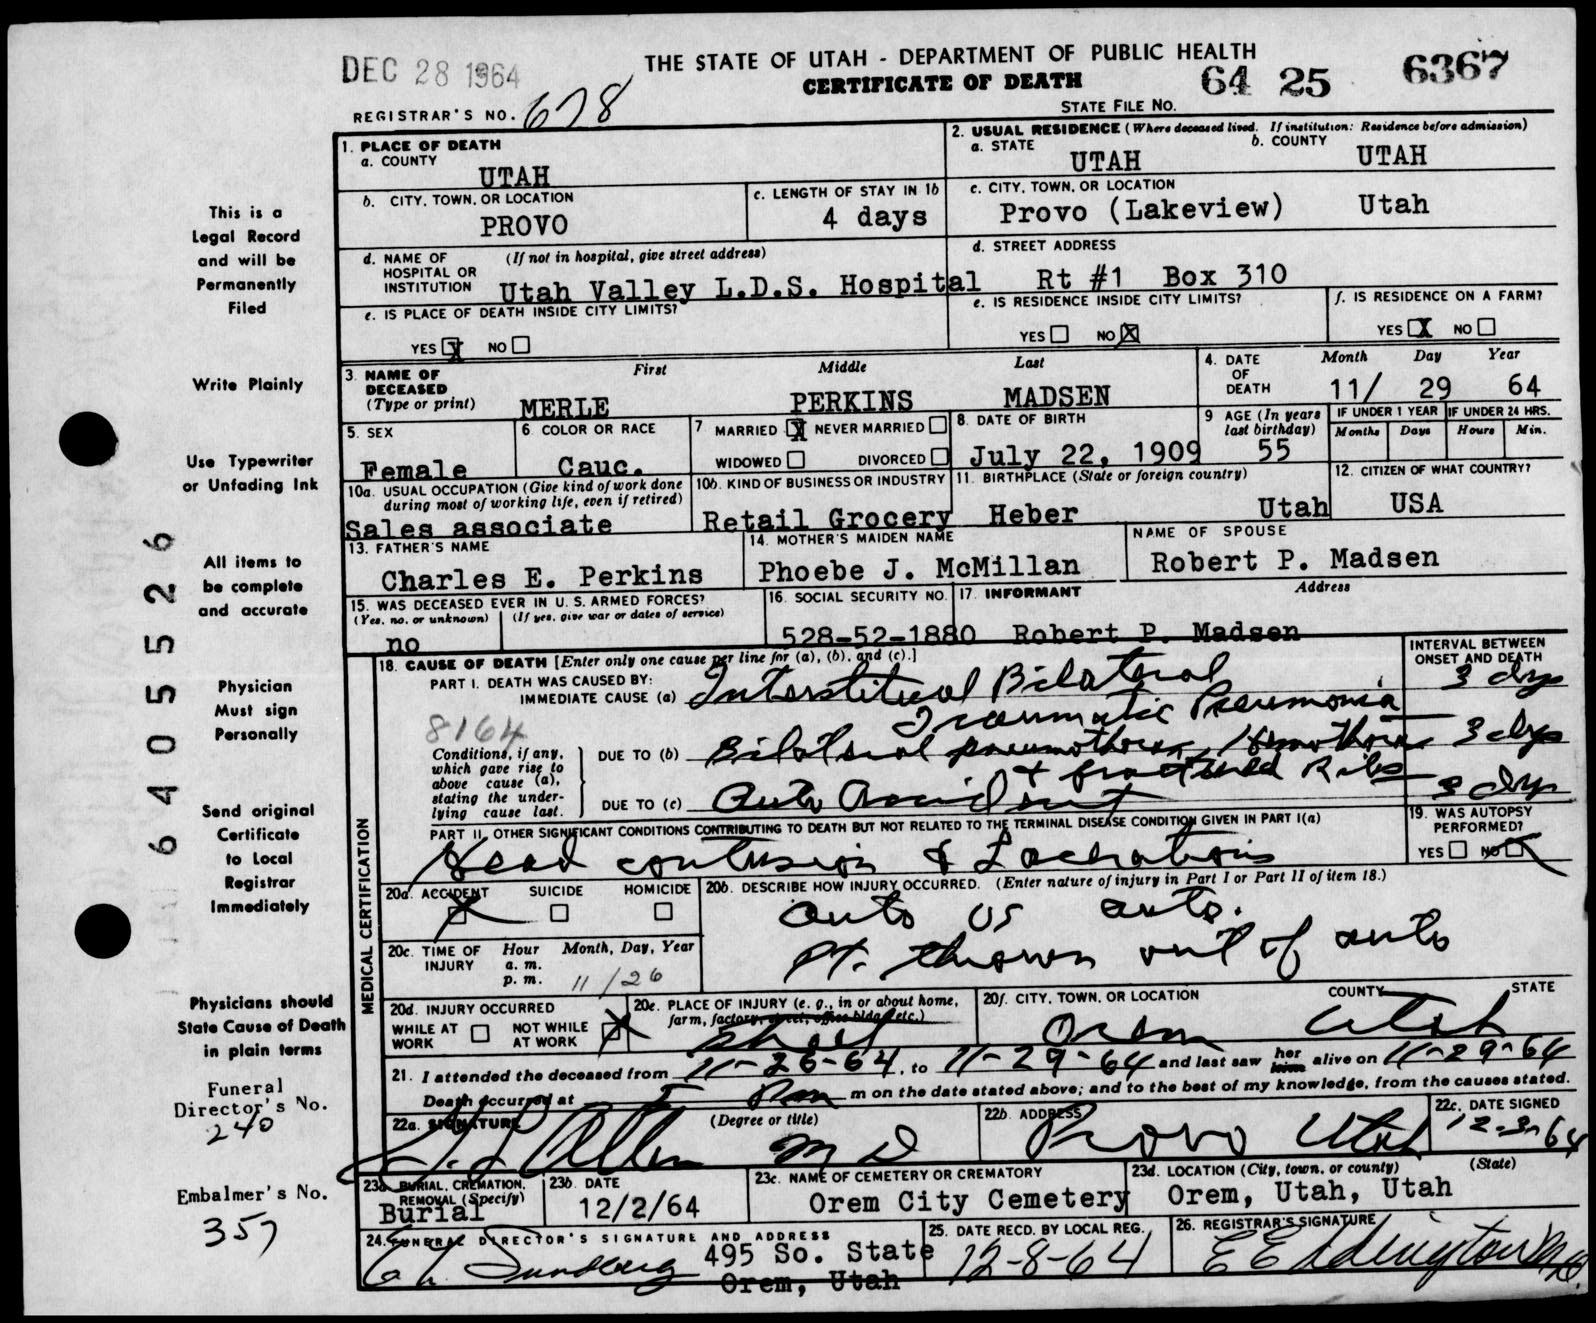 DEC 28 1964
THE STATE OF UTAH - DEPARTMENT OF PUBLIC HEALTH
CERTIFICATE OF DEATH
64 25 6367
REGISTRAR'S NO. 678
STATE FILE NO.
This is a
Legal Record
and will be
Permanently
Filed
Write Plainly
Use Typewriter
or Unfading Ink
All items to
be complete
and accurate
Physician
Must sign
Personally
Send original
Certificate
to Local
Registrar
Immediately
Physicians should
State Cause of Death
in plain terms
Funeral
Director's No.
240
Embalmer's No.
357
64055526
1. PLACE OF DEATH
a. COUNTY
UTAH
2. USUAL RESIDENCE (Where deceased lived. If institution: Residence before admission)
a. STATE
UTAH
b. COUNTY
UTAH
b. CITY, TOWN, OR LOCATION
PROVO
c. LENGTH OF STAY IN 1b
4 days
c. CITY, TOWN, OR LOCATION
Provo (Lakeview) Utah
d. NAME OF HOSPITAL OR INSTITUTION (If not in hospital, give street address)
Utah Valley L.D.S. Hospital
d. STREET ADDRESS
Rt #1 Box 310
e. IS PLACE OF DEATH INSIDE CITY LIMITS?
YES X NO
e. IS RESIDENCE INSIDE CITY LIMITS?
YES NO X
f. IS RESIDENCE ON A FARM?
YES X NO
3. NAME OF DECEASED (Type or print)
First Middle Last
MERLE PERKINS MADSEN
4. DATE OF DEATH
Month Day Year
11/ 29 64
5. SEX
Female
6. COLOR OR RACE
Cauc.
7 MARRIED X NEVER MARRIED
WIDOWED DIVORCED
8. DATE OF BIRTH
July 22, 1909
9 AGE (In years last birthday)
55
IF UNDER 1 YEAR
Months Days
IF UNDER 24 HRS.
Hours Min.
10a. USUAL OCCUPATION (Give kind of work done during most of working life, even if retired)
Sales associate
10b. KIND OF BUSINESS OR INDUSTRY
Retail Grocery
11. BIRTHPLACE (State or foreign country)
Heber Utah
12. CITIZEN OF WHAT COUNTRY?
USA
13. FATHER'S NAME
Charles E. Perkins
14. MOTHER'S MAIDEN NAME
Phoebe J. McMillan
NAME OF SPOUSE
Robert P. Madsen
15. WAS DECEASED EVER IN U. S. ARMED FORCES?
(Yes, no, or unknown) (If yes, give war or dates of service)
no
16. SOCIAL SECURITY NO.
528-52-1880
17. INFORMANT Address
Robert P. Madsen
MEDICAL CERTIFICATION
18. CAUSE OF DEATH [Enter only one cause per line for (a), (b), and (c).]
INTERVAL BETWEEN ONSET AND DEATH
PART I. DEATH WAS CAUSED BY:
IMMEDIATE CAUSE (a) Interstitual Bilateral
Traumatic Pneumonia
3 dys
8164
Conditions, if any, which gave rise to above cause (a), stating the underlying cause last.
DUE TO (b) Bilateral pneumothorax, Hemothorax
+ fractured Ribs
3 dys
DUE TO (c) Auto Accident
3 dys
PART II. OTHER SIGNIFICANT CONDITIONS CONTRIBUTING TO DEATH BUT NOT RELATED TO THE TERMINAL DISEASE CONDITION GIVEN IN PART I(a)
Head contusion & Lacerations
19. WAS AUTOPSY PERFORMED?
YES NO X
20a. ACCIDENT X SUICIDE HOMICIDE
20b. DESCRIBE HOW INJURY OCCURRED. (Enter nature of injury in Part I or Part II of item 18.)
auto vs auto.
Pt. thrown out of auto
20c. TIME OF INJURY
Hour Month, Day, Year
a. m.
p. m. 11/26
20d. INJURY OCCURRED
WHILE AT WORK NOT WHILE AT WORK X
20e. PLACE OF INJURY (e. g., in or about home, farm, factory, street, office bldg., etc.)
20f. CITY, TOWN, OR LOCATION COUNTY STATE
Orem Utah
21. I attended the deceased from 11-26-64, to 11-29-64 and last saw her him alive on 11-29-64
Death occurred at 5 Pm m on the date stated above; and to the best of my knowledge, from the causes stated.
22a. SIGNATURE (Degree or title)
Allen M D
22b. ADDRESS
Provo Utah
22c. DATE SIGNED
12-3-64
23a. BURIAL, CREMATION, REMOVAL (Specify)
Burial
23b. DATE
12/2/64
23c. NAME OF CEMETERY OR CREMATORY
Orem City Cemetery
23d. LOCATION (City, town, or county) (State)
Orem, Utah, Utah
24. FUNERAL DIRECTOR'S SIGNATURE AND ADDRESS
Sundberg 495 So. State
Orem, Utah
25. DATE RECD. BY LOCAL REG.
12-8-64
26. REGISTRAR'S SIGNATURE
E E Eddington